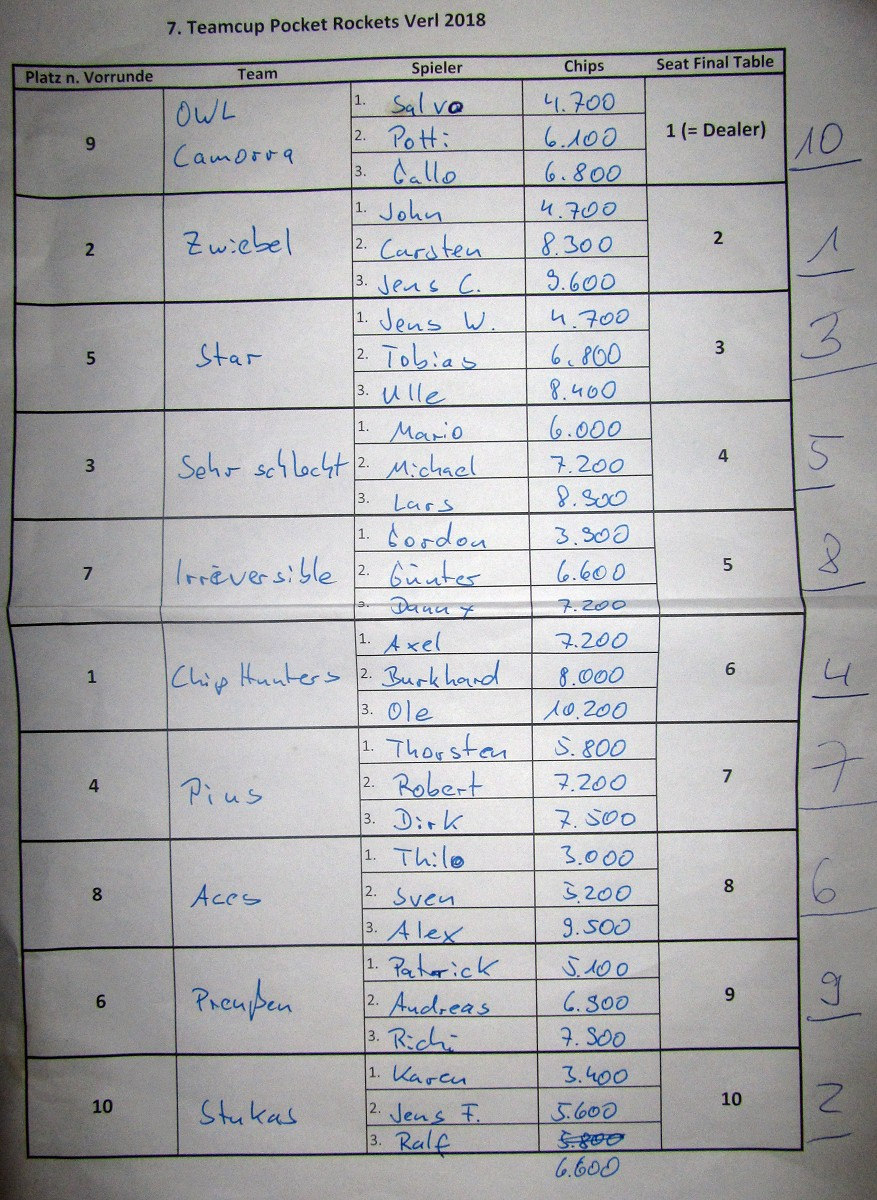 7. Teamcup Pocket Rockets Verl 2018
Platz n. Vorrunde Team Spieler Chips Seat Final Table
9 OWL Camorra 1. Salvo 4.700 1 (= Dealer) 10
2. Potti 6.100
3. Gallo 6.800
2 Zwiebel 1. John 4.700 2 1
2. Carsten 8.300
3. Jens C. 9.600
5 Star 1. Jens W. 4.700 3 3
2. Tobias 6.800
3. Ulle 8.400
3 Sehr schlecht 1. Mario 6.000 4 5
2. Michael 7.200
3. Lars 8.900
7 Irréversible 1. Gordon 3.900 5 8
2. Günter 6.600
3. Danny 7.200
1 Chip Hunters 1. Axel 7.200 6 4
2. Burkhard 8.000
3. Ole 10.200
4 Pius 1. Thorsten 5.800 7 7
2. Robert 7.200
3. Dirk 7.500
8 Aces 1. Thilo 3.000 8 6
2. Sven 5.200
3. Alex 9.500
6 Preußen 1. Patrick 5.100 9 9
2. Andreas 6.900
3. Richi 7.900
10 Stukas 1. Karen 3.400 10 2
2. Jens F. 5.600
3. Ralf 5.800
6.600